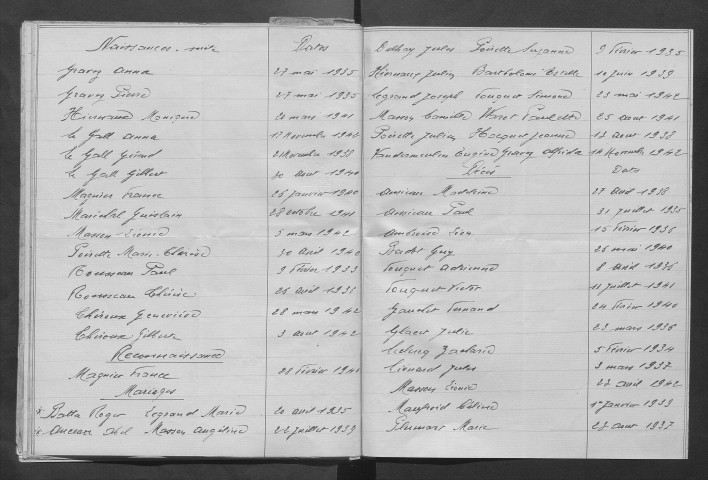 Naissances suite Dates
Gravez Anna 27 mai 1935
Gravez Pierre 27 mai 1935
Hiernaux Monique 20 mars 1941
Le Gall Anna 17 Novembre 1946
Le Gall Gérard 21 Novembre 1938
Le Gall Gilbert 30 aout 1940
Magnier France 26 janvier 1940
Maréchal Guislain 28 octobre 1941
Masson Léonce 5 mars 1942
Poirette Marie-Thérèse 30 avril 1940
Rousseau Paul 9 février 1933
Rousseau Thérèse 26 avril 1936
Théroux Geneviève 28 mars 1942
Théroux Gilbert 3 aout 1942
Reconnaissance
Magnier France 28 février 1940
Mariages
x Batta Roger Legrand Marie 20 avril 1935
x Abel Masson Angéline 22 juillet 1939
Jules Poirette Suzanne 9 février 1935
Hiernaux Julien Bartholomé 10 juin 1939
Legrand Joseph Touquet Simone 23 mai 1942
Masson Camille Paulette 25 aout 1941
Poirette Julien Hocquet Jeanne 13 aout 1938
Eugène Gravez Alfrida 14 Novembre 1942
Décès Dates
Madeleine 27 avril 1938
Paul 31 juillet 1935
Ambroise Léon 15 février 1936
Guy 26 mai 1940
Touquet Adrienne 8 avril 1936
Touquet Victor 11 juillet 1941
Gaudet Fernand 24 février 1940
Julie 23 mars 1936
Leclercq Zacharie 5 février 1934
Liénard Jules 3 mars 1937
Masson Léonce 27 avril 1942
Céline 1er janvier 1939
Plumart Marie 27 aout 1937